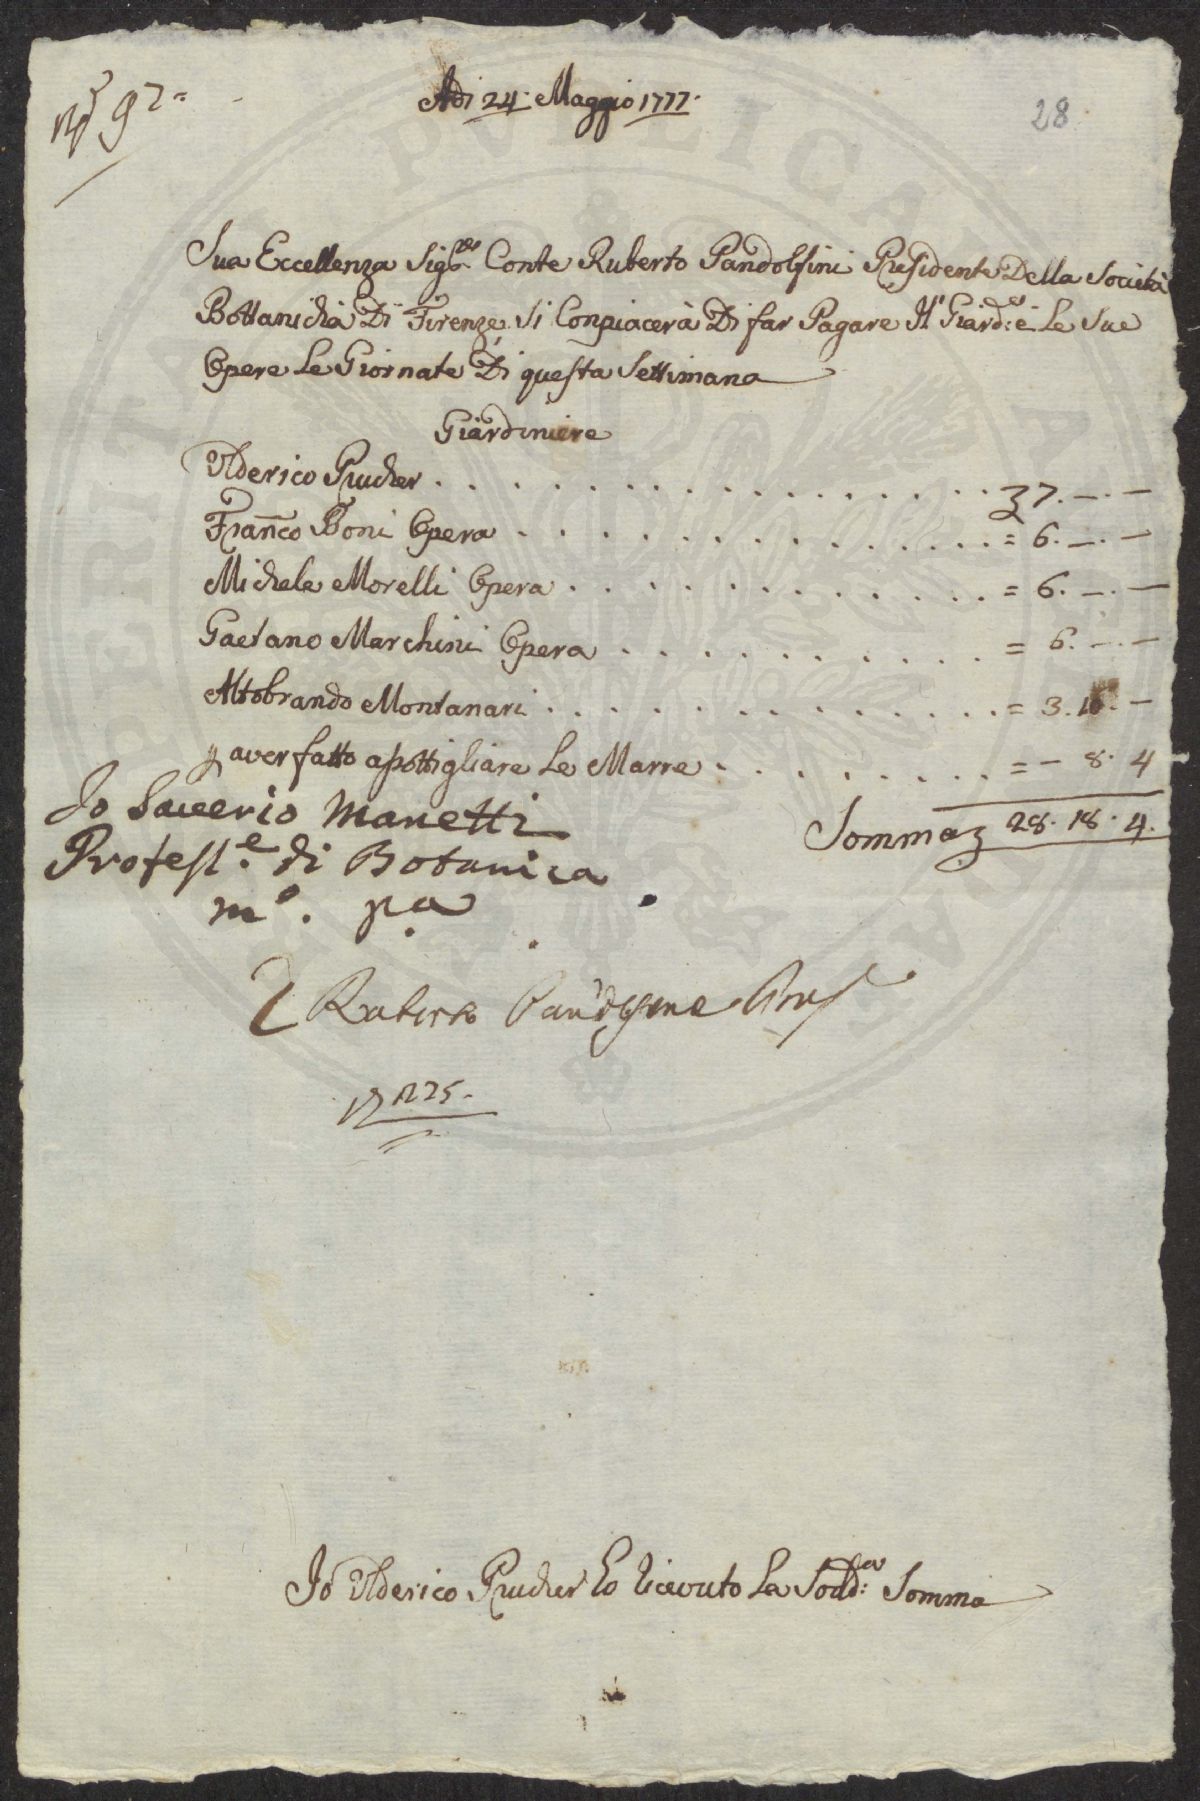 N.º 92=
Adi 24. Maggio 1777.
28
Sua Eccellenza Sig.re Conte Ruberto Pandolfini Presidente Della Società
Bottanicha Di Firenze. Si Conpiacerà Di far Pagare Il Giard:e é Le Sue
Opere Le Giornate Di questa Settimana
Giardiniere
Ulderico Prucher . . . . . . . . . . . . . . . . 7. —. —
Fran̄co Boni Opera . . . . . . . . . . . . . = 6. —. —
Michele Morelli Opera . . . . . . . . . . . . = 6. —. —
Gaetano Marchini Opera . . . . . . . . . . = 6. —. —
Altobrando Montanari . . . . . . . . . . . . = 3. 10. —
p aver fatto aſottigliare Le Marre . . . . . . . . = — 8. 4
Somma 28. 18. 4.
Io Saverio Manetti
Profess.e di Botanica
m.o p.a
Ruberto Pandolfini Pres
N 225.
Io Ulderico Prucher ho ricevuto La Sodd:a Somma